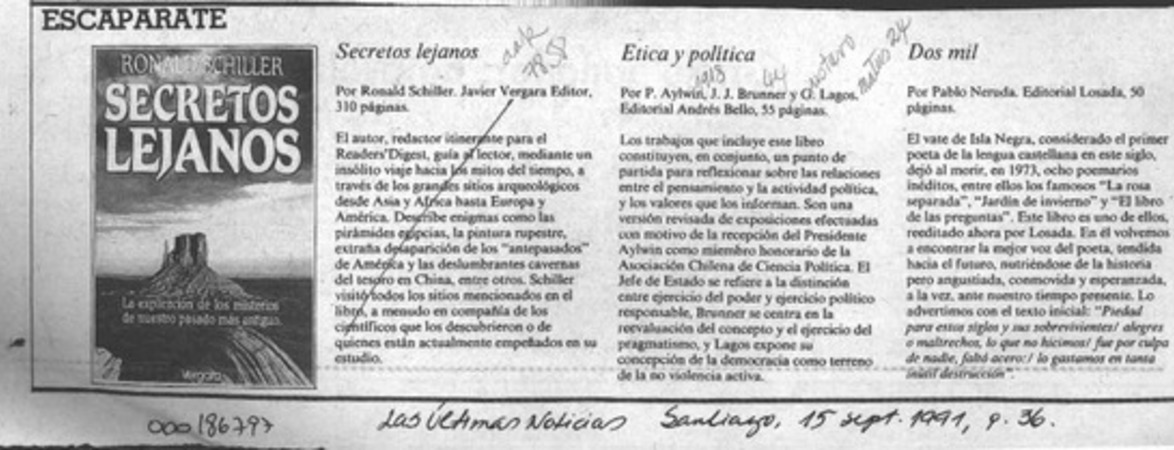 ESCAPARATE
RONALD SCHILLER
SECRETOS
LEJANOS
La explicación de los misterios
de nuestro pasado más antiguo.
Vergara
Secretos lejanos
7858
Por Ronald Schiller. Javier Vergara Editor,
310 páginas.
El autor, redactor itinerante para el
Readers'Digest, guía al lector, mediante un
insólito viaje hacia los mitos del tiempo, a
través de los grandes sitios arqueológicos
desde Asia y Africa hasta Europa y
América. Describe enigmas como las
pirámides egipcias, la pintura rupestre,
extraña desaparición de los "antepasados"
de América y las deslumbrantes cavernas
del tesoro en China, entre otros. Schiller
visitó todos los sitios mencionados en el
libro, a menudo en compañía de los
científicos que los descubrieron o de
quienes están actualmente empeñados en su
estudio.
Etica y política
1918
Gustavo
Matus 24
Por P. Aylwin, J. J. Brunner y G. Lagos,
Editorial Andrés Bello, 55 páginas.
Los trabajos que incluye este libro
constituyen, en conjunto, un punto de
partida para reflexionar sobre las relaciones
entre el pensamiento y la actividad política,
y los valores que los informan. Son una
versión revisada de exposiciones efectuadas
con motivo de la recepción del Presidente
Aylwin como miembro honorario de la
Asociación Chilena de Ciencia Política. El
Jefe de Estado se refiere a la distinción
entre ejercicio del poder y ejercicio político
responsable, Brunner se centra en la
reevaluación del concepto y el ejercicio del
pragmatismo, y Lagos expone su
concepción de la democracia como terreno
de la no violencia activa.
Dos mil
Por Pablo Neruda. Editorial Losada, 50
páginas.
El vate de Isla Negra, considerado el primer
poeta de la lengua castellana en este siglo,
dejó al morir, en 1973, ocho poemarios
inéditos, entre ellos los famosos "La rosa
separada", "Jardín de invierno" y "El libro
de las preguntas". Este libro es uno de ellos,
reeditado ahora por Losada. En él volvemos
a encontrar la mejor voz del poeta, tendida
hacia el futuro, nutriéndose de la historia
pero angustiada, conmovida y esperanzada,
a la vez, ante nuestro tiempo presente. Lo
advertimos con el texto inicial: "Piedad
para estos siglos y sus sobrevivientes/ alegres
o maltrechos, lo que no hicimos/ fue por culpa
de nadie, faltó acero:/ lo gastamos en tanta
inútil destrucción".
000186797
Las Últimas Noticias Santiago, 15 sept. 1991, p. 36.